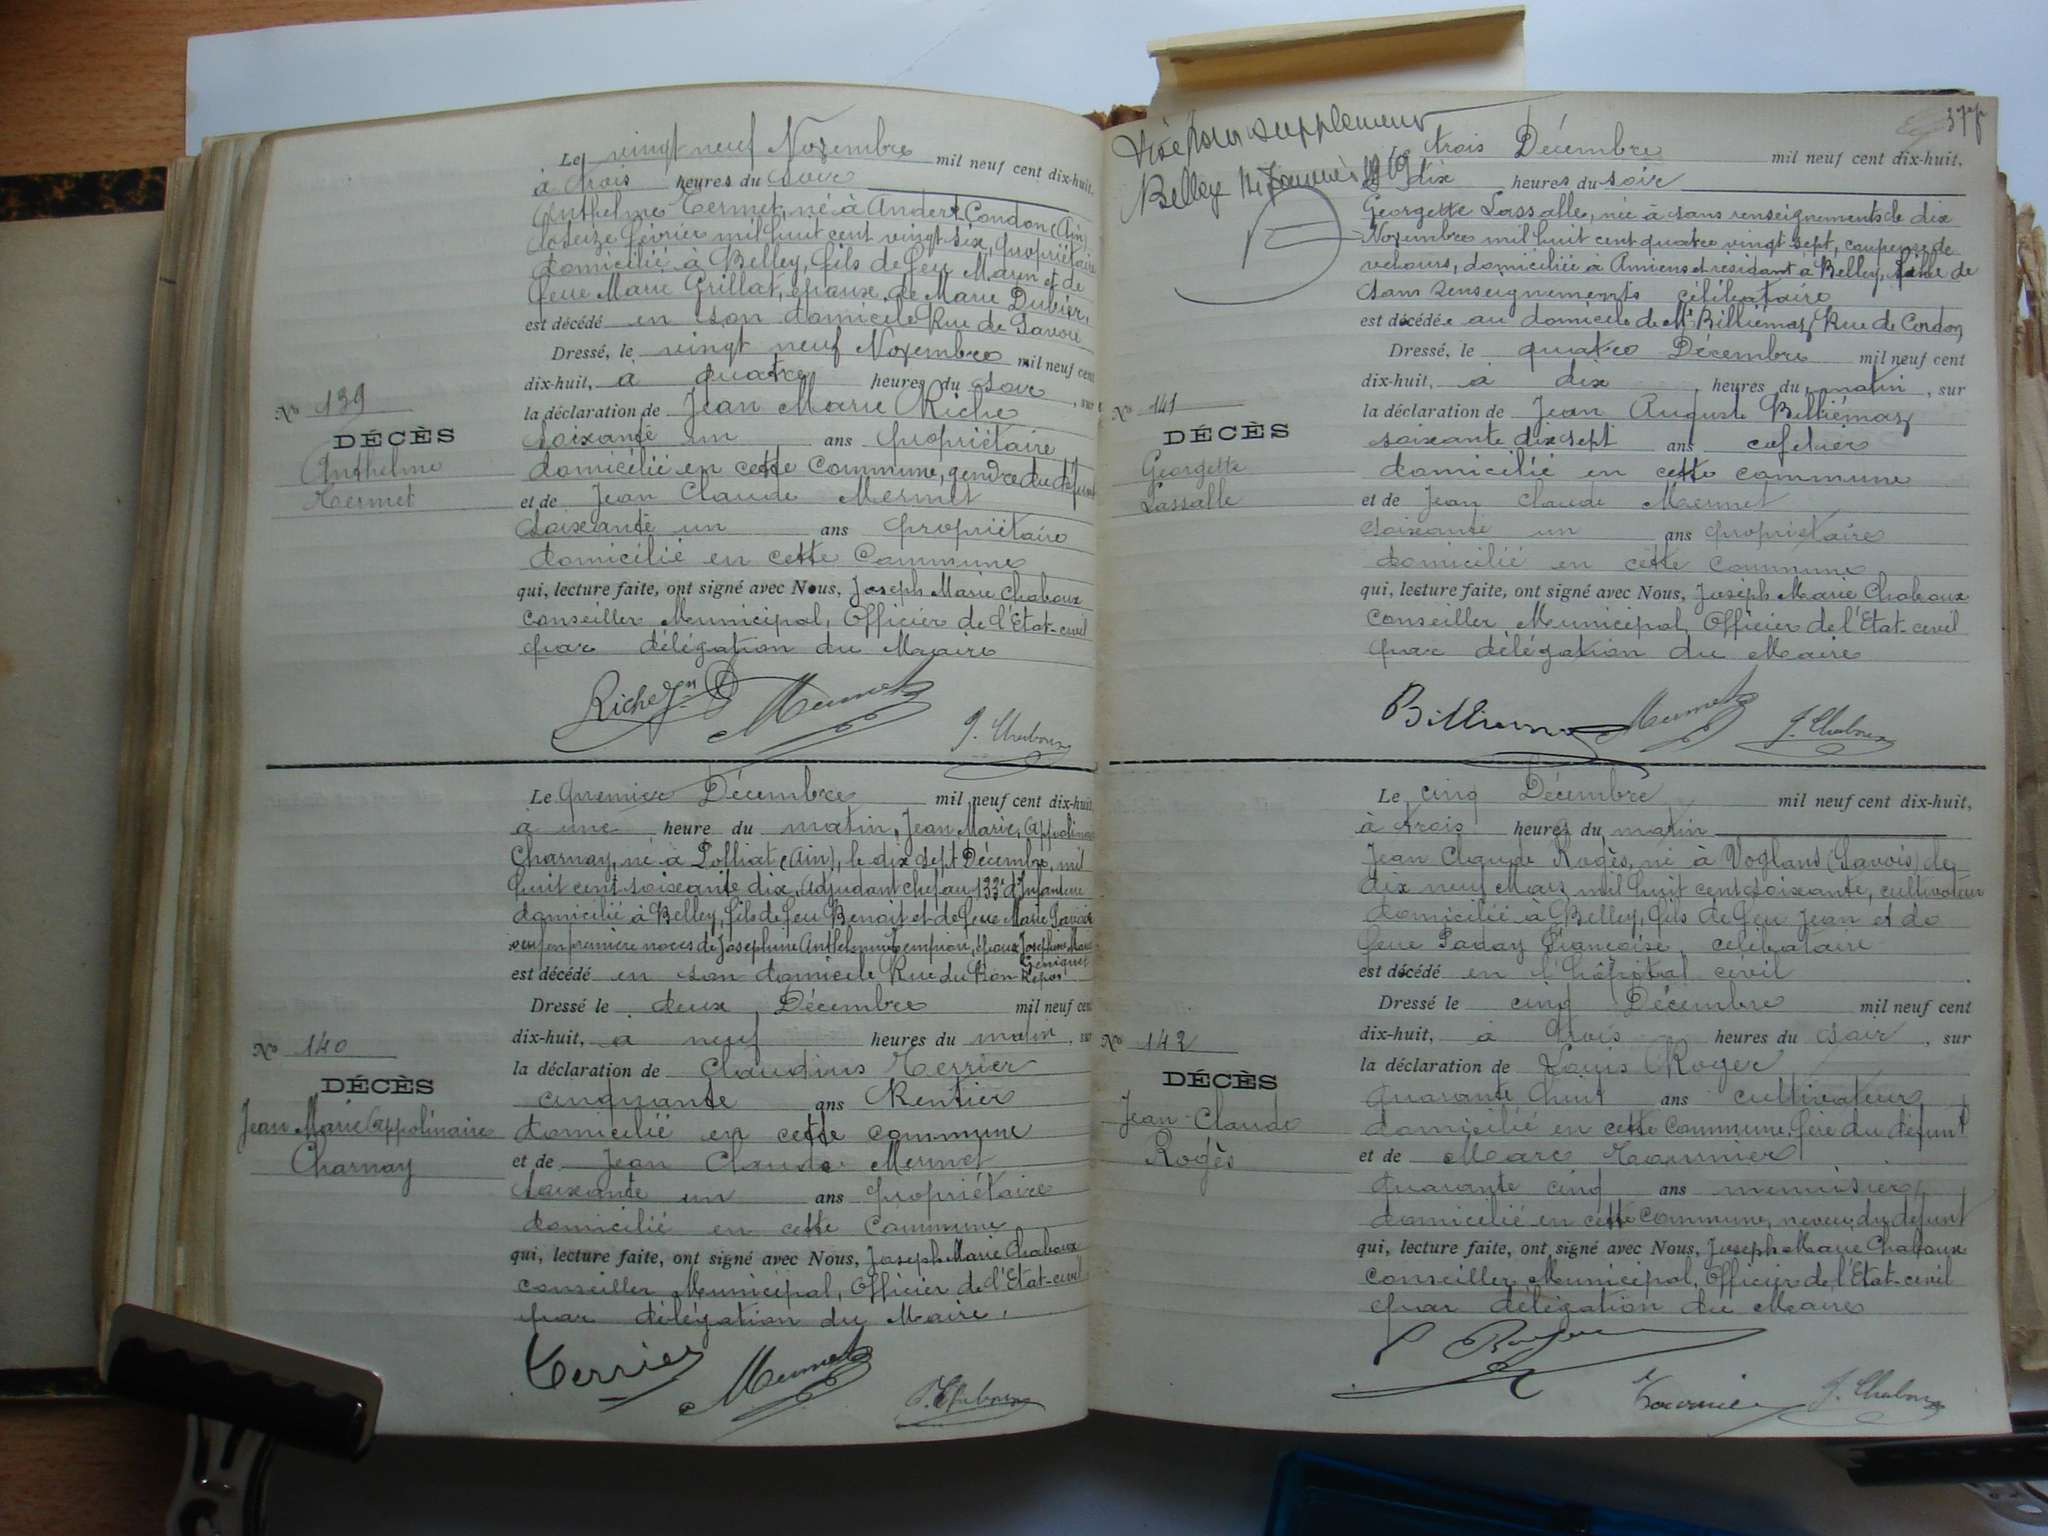 Le vingt neuf Novembre mil neuf cent dix-huit,
à trois heures du soir
Anthelme Termet, né à Andert-Condon (Ain)
le seize février mil huit cent vingt six, propriétaire
domicilié à Belley, fils de feu Marin et de
feue Marie Grillat, époux de Marie Dubier,
est décédé en son domicile Rue de Savoie
Dressé, le vingt neuf Novembre mil neuf cent
dix-huit, à quatre heures du soir, sur
No 139
la déclaration de Jean Marie Riche
DÉCÈS
soixante un ans propriétaire
Anthelme
domicilié en cette Commune, gendre du défunt
Termet
et de Jean Claude Mermet
soixante un ans propriétaire
domicilié en cette Commune
qui, lecture faite, ont signé avec Nous, Joseph Marie Chaboux
Conseiller Municipal, Officier de l'Etat-civil
par délégation du Maire
Riche Jn Mermet J. Chaboux
Le premier Décembre mil neuf cent dix-huit,
à une heure du matin, Jean Marie, Appolinaire
Charnay, né à Polliat (Ain), le dix sept Décembre, mil
huit cent soixante dix, adjudant chef au 133e d'Infanterie
domicilié à Belley, fils de feu Benoit et de feue Marie
veuf en première noces de Joséphine Anthelmine, époux Joséphine Marie
Geniquet
est décédé en son domicile Rue du Bon Repos
Dressé le deux Décembre mil neuf cent
dix-huit, à neuf heures du matin, sur
No 140
la déclaration de Claudius Terrier
DÉCÈS
cinquante ans Rentier
Jean Marie Appolinaire
domicilié en cette commune
Charnay
et de Jean Claude Mermet
soixante un ans propriétaire
domicilié en cette Commune
qui, lecture faite, ont signé avec Nous, Joseph Marie Chaboux
conseiller Municipal, Officier de l'Etat-civil
par délégation du Maire.
Terrier Mermet J. Chaboux
377
Visé pour supplément
Belley Janvier 1919
Le trois Décembre mil neuf cent dix-huit,
dix heures du soir
Georgette Lassalle, née à sans renseignements le dix
Novembre mil huit cent quatre vingt sept, coupeuse de
velours, domiciliée à Amiens et résidant à Belley, fille de
sans renseignements célibataire
est décédée au domicile de Mr Billiémaz Rue de Cordon
Dressé, le quatre Décembre mil neuf cent
dix-huit, à dix heures du matin, sur
No 141
la déclaration de Jean Auguste Billiémaz
DÉCÈS
soixante dix sept ans cafetier
Georgette
domicilié en cette commune
Lassalle
et de Jean Claude Mermet
soixante un ans propriétaire
domicilié en cette Commune
qui, lecture faite, ont signé avec Nous, Joseph Marie Chaboux
Conseiller Municipal, Officier de l'Etat-civil
par délégation du Maire
Billiemaz Mermet J. Chaboux
Le cinq Décembre mil neuf cent dix-huit,
à trois heures du matin
Jean Claude Rogès, né à Voglans (Savoie) le
dix neuf Mars mil huit cent soixante, cultivateur
domicilié à Belley, fils de feu Jean et de
feue Paday Françoise, célibataire
est décédé en l'hôpital civil
Dressé le cinq Décembre mil neuf cent
dix-huit, à trois heures du soir, sur
No 142
la déclaration de Louis Roger
DÉCÈS
quarante huit ans cultivateur
Jean-Claude
domicilié en cette commune, frère du défunt
Rogès
et de Marc Tournier
quarante cinq ans menuisier
domicilié en cette commune, neveu du défunt
qui, lecture faite, ont signé avec Nous, Joseph Marie Chaboux
Conseiller Municipal, Officier de l'Etat-civil
par délégation du Maire
Tournier J. Chaboux